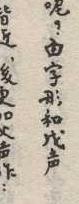 呢？由字形和戌声
皆近，后更加以声作：